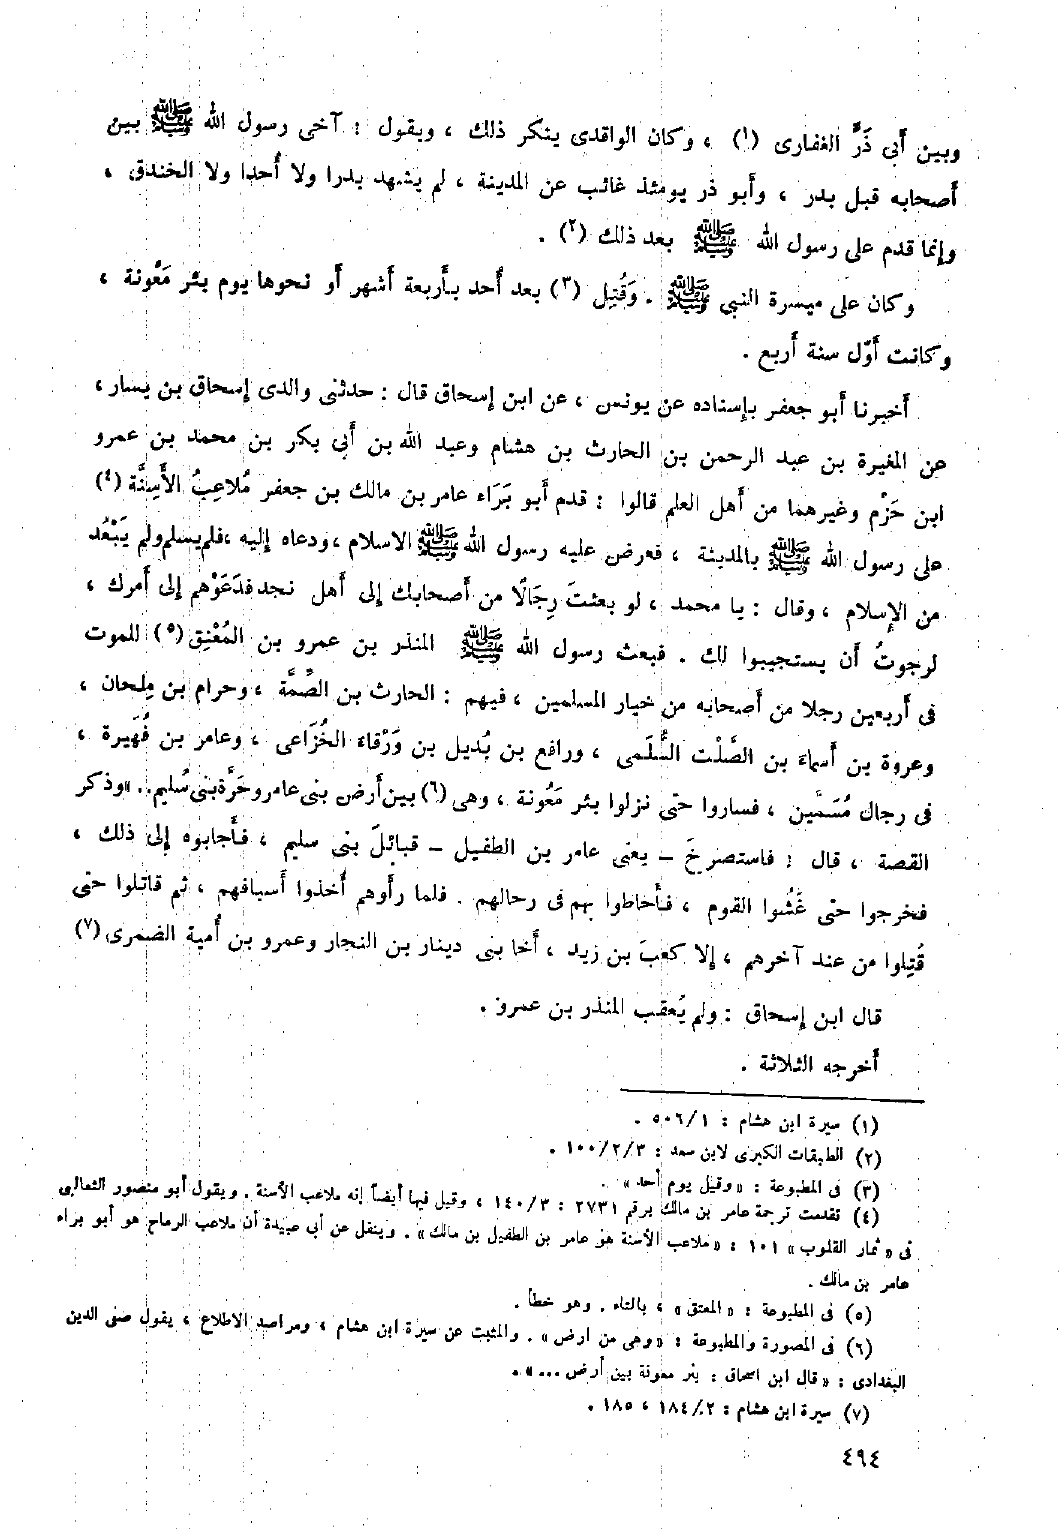 وبين أَبى ذَرٍّ الغفارى (١) ، وكان الواقدى ينكر ذلك ، ويقول : آخى رسول الله ﷺ بين
أَصحابه قبل بدر ، وأَبو ذر يومئذ غائب عن المدينة ، لم يشهد بدرا ولا أُحدا ولا الخندق ،
وإنما قدم على رسول الله ﷺ بعد ذلك (٢) .
وكان على ميسرة النبي ﷺ . وَقُتِل (٣) بعد أُحد بأَربعة أَشهر أَو نحوها يوم بئر مَعُونة ،
وكانت أَوّل سنة أَربع .
أَخبرنا أَبو جعفر بإسناده عن يونس ، عن ابن إسحاق قال : حدثنى والدى إسحاق بن يسار ،
عن المغيرة بن عبد الرحمن بن الحارث بن هشام وعبد الله بن أَبى بكر بن محمد بن عمرو
ابن حَزْم وغيرهما من أَهل العلم قالوا : قدم أَبو بَرَاء عامر بن مالك بن جعفر مُلاعِبُ الأَسِنَّة (٤)
على رسول الله ﷺ بالمدينة ، فعرض عليه رسول الله ﷺ الاسلام ، ودعاه إليه ، فلم يسلم ولم يَبْعُد
من الإسلام ، وقال : يا محمد ، لو بعثتَ رِجَالًا من أَصحابك إلى أَهل نجد فدَعَوْهم إلى أَمرك ،
لرجوتُ أَن يستجيبوا لك . فبعث رسول الله ﷺ المنذر بن عمرو بن المُعْنِق (٥) للموت
فى أَربعين رجلا من أَصحابه من خيار المسلمين ، فيهم : الحارث بن الصِّمَّة ، وحرام بن مِلحان ،
وعروة بن أَسماءَ بن الصَّلْت السُّلَمى ، ورافع بن بُديل بن وَرْقاءَ الخُزَاعى ، وعامر بن فُهَيرة ،
فى رجال مُسَمَّين ، فساروا حتى نزلوا بئر مَعُونة ، وهى (٦) بين أَرض بنى عامر وحَرَّة بنى سُليم .. » وذكر
القصة ، قال : فاستصرخَ – يعنى عامر بن الطفيل – قبائلَ بنى سليم ، فأَجابوه إلى ذلك ،
فخرجوا حتى غَشُوا القوم ، فأَحاطوا بهم فى رحالهم . فلما رأَوهم أَخذوا أَسيافهم ، ثم قاتلوا حتى
قُتِلوا من عند آخرهم ، إلا كعبَ بن زيد ، أَخا بنى دينار بن النجار وعمرو بن أُمية الضمرى (٧)
قال ابن إسحاق : ولم يُعقب المنذر بن عمرو .
أَخرجه الثلاثة .
(١) سيرة ابن هشام : ٥٠٦/١ .
(٢) الطبقات الكبرى لابن سعد : ١٠٠/٢/٣ .
(٣) فى المطبوعة : « وقيل يوم أحد » .
(٤) تقدمت ترجمة عامر بن مالك برقم ٢٧٣١ : ١٤٠/٣ ، وقيل فيها أيضاً إنه ملاعب الأسنة . ويقول أبو منصور الثعالبى
فى « ثمار القلوب » ١٠١ : « ملاعب الأسنة هو عامر بن الطفيل بن مالك » . وينقل عن أبى عبيدة أن ملاعب الرماح هو أبو براء
عامر بن مالك .
(٥) فى المطبوعة : « المعتق » ، بالتاء . وهو خطأ .
(٦) فى المصورة والمطبوعة : « وهى من ارض » . والمثبت عن سيرة ابن هشام ، ومراصد الاطلاع ، يقول صفى الدين
البغدادى : « قال ابن اسحاق : بئر معونة بين أرض ... » .
(٧) سيرة ابن هشام : ١٨٤/٢ ، ١٨٥ .
٤٩٤